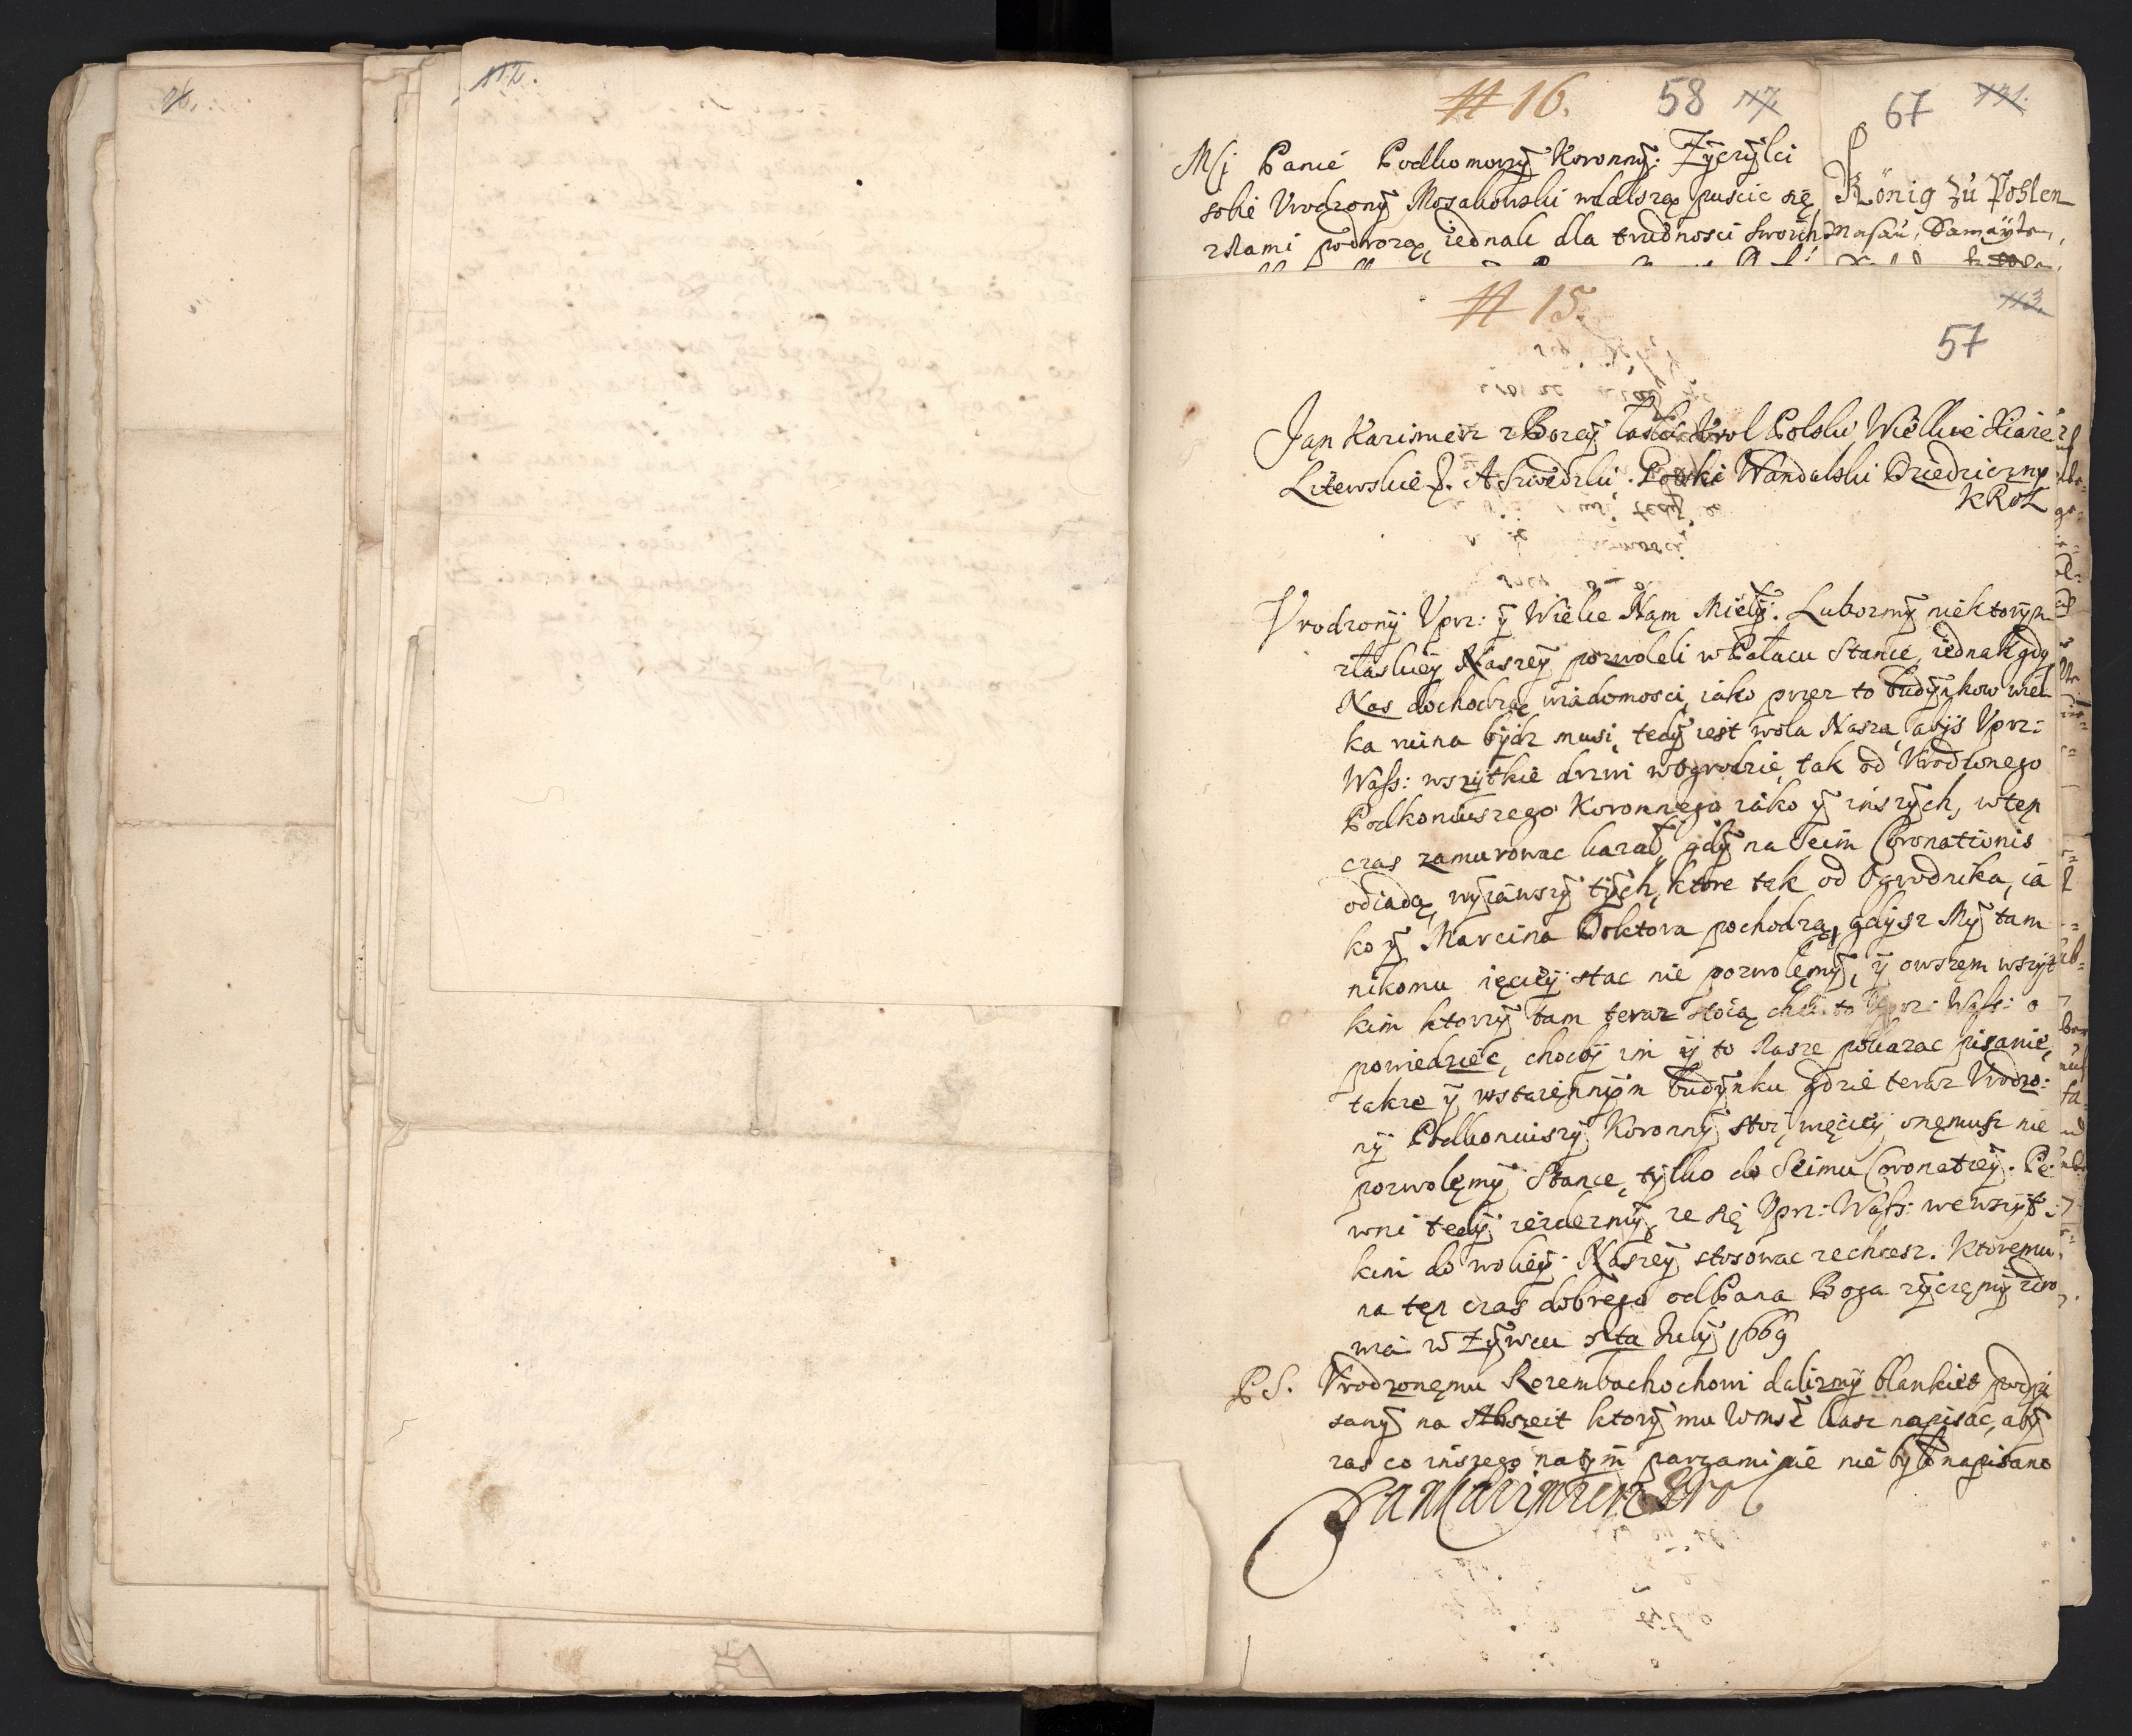 96.
112.
# 16. 58 117.
Msci Panie Podkomorzÿ Koronnÿ. Zÿczÿlci
sobie Vrodzonÿ Mosakowski wdalszą puscic się
zNami podrozą, iednak dla trudnosci swoich
67 131.
König zu Pohlen
Masau, Samaÿten,
# 15.
113.
57
Jan Kazimierz z Bozeÿ łaski Krol Polski Wielkie Xiąze
Litewskie &. A Szwedzki. Gotski Wandalski Dziedziczny
KROL
Vrodzonÿ Vprz: ÿ Wielce Nąm Miełÿ. Lubozmÿ niektorÿm
złaskieÿ Naszeÿ pozwoleli w Pałacu Stance, iednak gdÿ
Nas dochodzą wiadomosci, iako przez to budÿnkow wiel
ka ruina bÿdz musi, tedÿ iest wola Nasza, abÿs Vprz:
Wass: wszÿtkie drzwi wogrodzie, tak od Vrodzonego
Podkoniuszego Koronnego iako ÿ inszÿch, wten
czas zamurowac kazał, gdÿ na Seim Coronationis
odiadą, wÿiawszÿ tÿch, ktore tak od Ogrodnika, ia
ko ÿ Marcina Doktora pochodzą, gdÿsz Mÿ tam
nikomu więcÿ stac nie pozwolemÿ, ÿ owszem wszÿt
kim ktorzÿ tam teraz stoią chciéÿ to Vprz: Wass: o
powiedziec, chocbÿ im ÿ to Nasze pokazac pisanie,
takze ÿ wstaiennÿm budÿnku gdzie teraz Vrodzo:
nÿ Podkoniuszÿ Koronnÿ stoi, więcÿ onemusz nie
pozwolemÿ Stance, tÿlko do Seimu Coronatieÿ. Pe:
wni tedÿ iezdezmÿ, ze się Vprz: Wass: we wszÿt:
kim do woleÿ Naszeÿ stosowac zechcesz. Ktoremu
na ten czas dobrego od Pana Boga zÿczemÿ zdro
wia w Zÿwcu Julÿ 1669
PS. Vrodzonemu Rozembachochowi dalizmÿ blankiet podpi
sanÿ na Abszeit ktorÿ mu Wmsc kasz napisac, abÿ
zas co inszego natÿm pargaminie nie bÿło napisano
Jan Cazimierz Krol